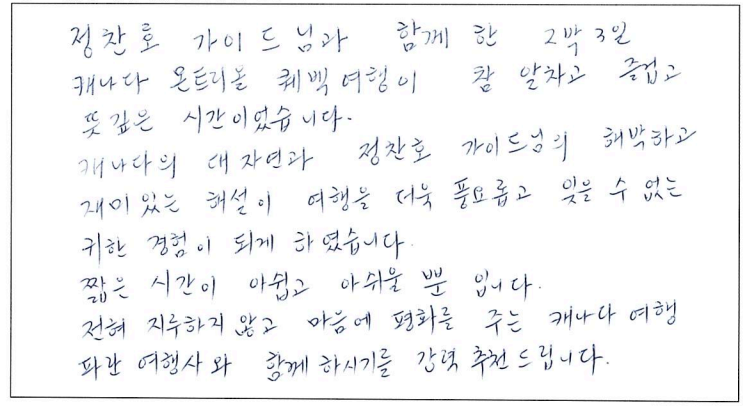 정찬호 가이드님과 함께 한 2박 3일
캐나다 몬트리올 퀘벡 여행이 참 알차고 즐겁고
뜻 깊은 시간이었습니다.
캐나다의 대 자연과 정찬호 가이드님의 해박하고
재미 있는 해설이 여행을 더욱 풍요롭고 잊을 수 없는
귀한 경험이 되게 하였습니다.
짧은 시간이 아쉽고 아쉬울 뿐 입니다.
전혀 지루하지 않고 마음에 평화를 주는 캐나다 여행
파란 여행사와 함께 하시기를 강력 추천 드립니다.